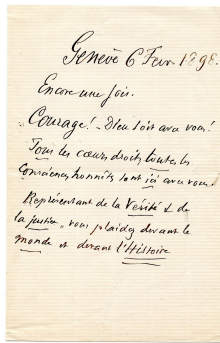 Genève 6 Fevr 1898.
Encore une fois.
Courage! Dieu soit avec vous!
Tous les cœurs droits, toutes les
consciences honnêtes sont ici avec vous.
Représentant de la Vérité & de
la Justice, vous plaidez devant le
monde et devant l'Histoire